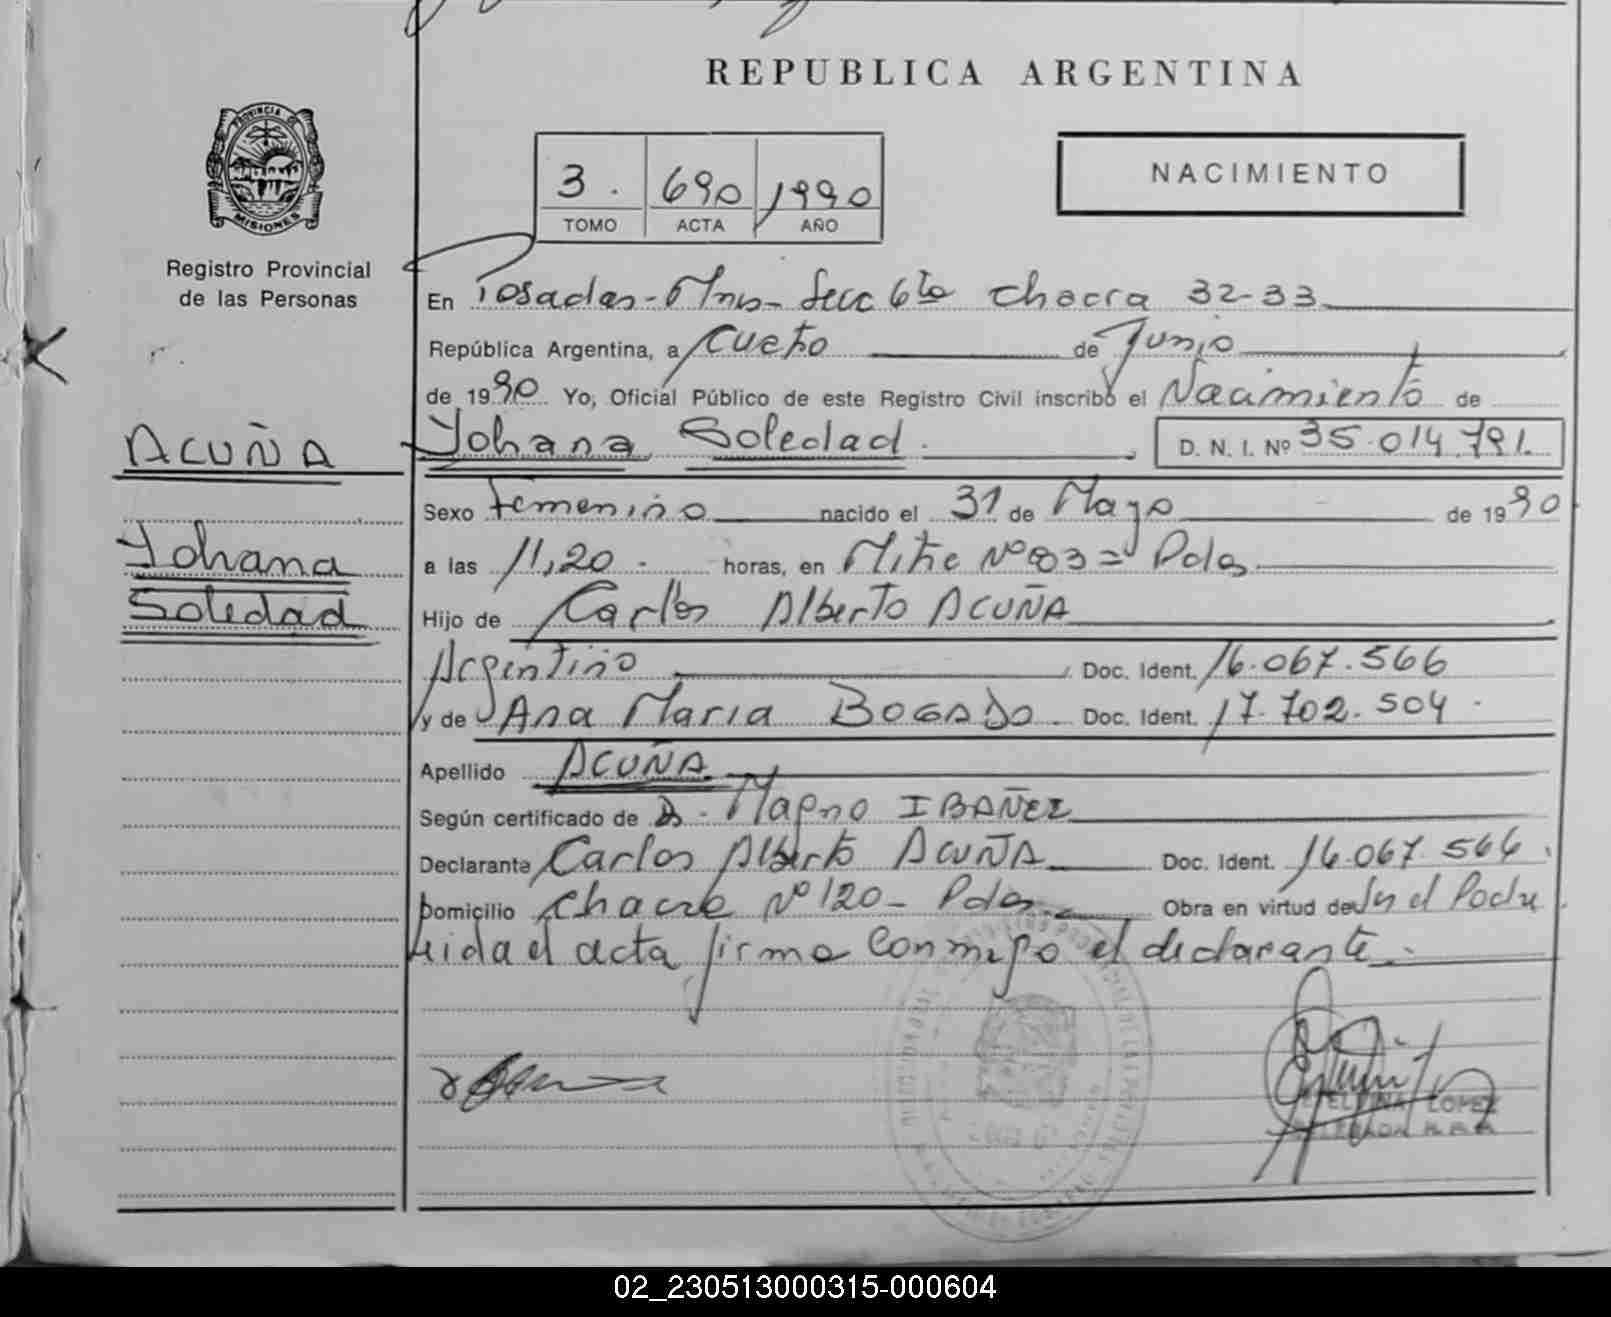 REPUBLICA ARGENTINA
PROVINCIA DE
MISIONES
Registro Provincial
de las Personas
3. 690 1990
TOMO ACTA AÑO
NACIMIENTO
En Posadas - Mnes - Secc 6ta Chacra 32-33
República Argentina, a Cuatro de Junio
de 1990 Yo, Oficial Público de este Registro Civil inscribo el Nacimiento de
ACUÑA
Yohana Soledad. D. N. I. Nº 35.014.791.
Sexo femenino nacido el 31 de Mayo de 1990
Yohana
Soledad
a las 11,20 horas, en Mitre Nº 83 = Pdas
Hijo de Carlos Alberto ACUÑA
Argentino Doc. Ident. 16.067.566
y de Ana Maria BOGADO. Doc. Ident. 17.702.504
Apellido ACUÑA
Según certificado de D. Magno IBAÑEZ
Declarante Carlos Alberto ACUÑA Doc. Ident. 16.067.566.
Domicilio Chacra Nº 120 - Pdas Obra en virtud de Ser el Padre
Leida el acta firma conmigo el declarante.
LOPEZ
02_230513000315-000604